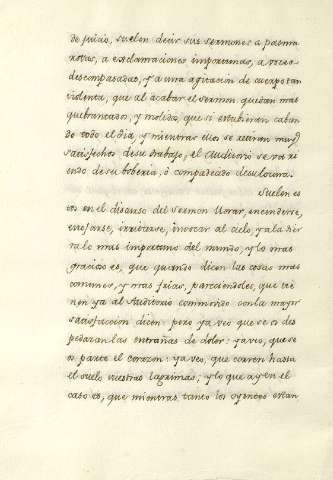 de juicio, suelen decir sus sermones a palma
rotas, a exclamaciones importunas, a voces
descompasadas, y a una agitacion de cuerpo tan
violenta, que al acabar el sermon quedan mas
quebrantados, y molidos, que si estubieran caban
do todo el dia, y mientras ellos se retiran muy
satisfechos de su trabajo, el Auditorio se va ri
endo de su boberia, ò compadecido de su locura.
Suelen es
tos en el discurso del Sermon llorar, encenderse,
enojarse, irritarse, invocar al cielo, y a la tier
ra lo mas importuno del mundo, y lo mas
gracioso es, que quando dicen las cosas mas
comunes, y mas frias, pareciendoles, que tie
nen ya al Auditorio commovido con la mayor
satisfaccion dicen: pero ya veo que se os des
pedazan las entrañas de dolor: ya veo, que se
os parte el corazon: ya veo, que corren hasta
el suelo vuestras lagrimas; y lo que ay en el
caso es, que mientras tanto los oyentes estan